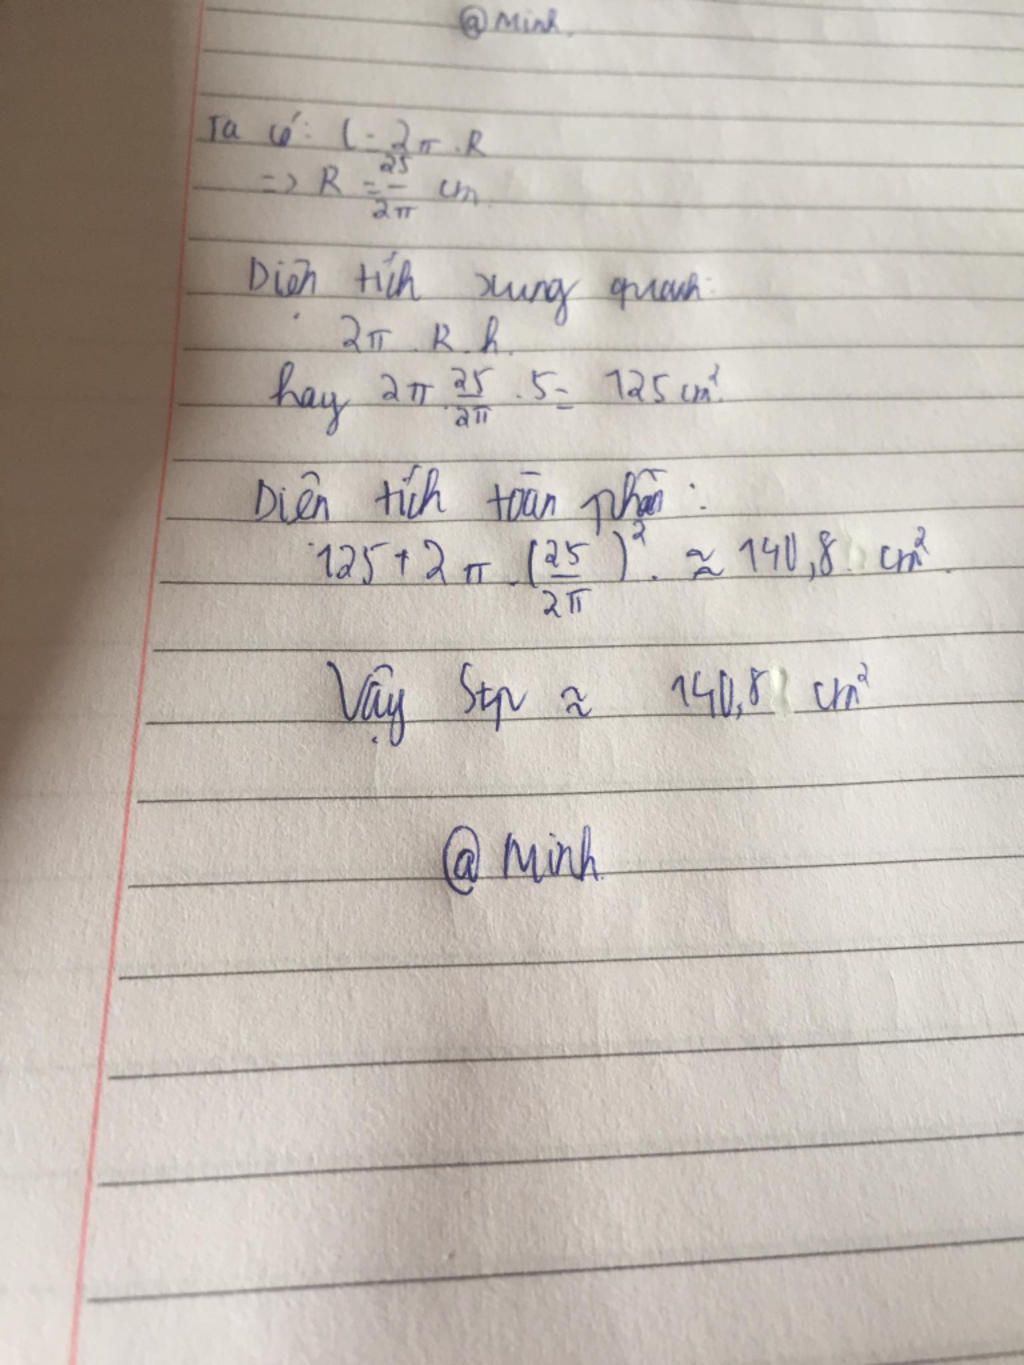 @ Minh.
Ta có: C = 2π.R
=> R = 25/2π cm
Diện tích xung quanh:
2π.R.h.
hay 2π 25/2π .5 = 125 cm².
Diện tích toàn phần:
125 + 2π.(25/2π)². ≈ 140,8 cm².
Vậy Stp ≈ 140,8 cm²
@ Minh.